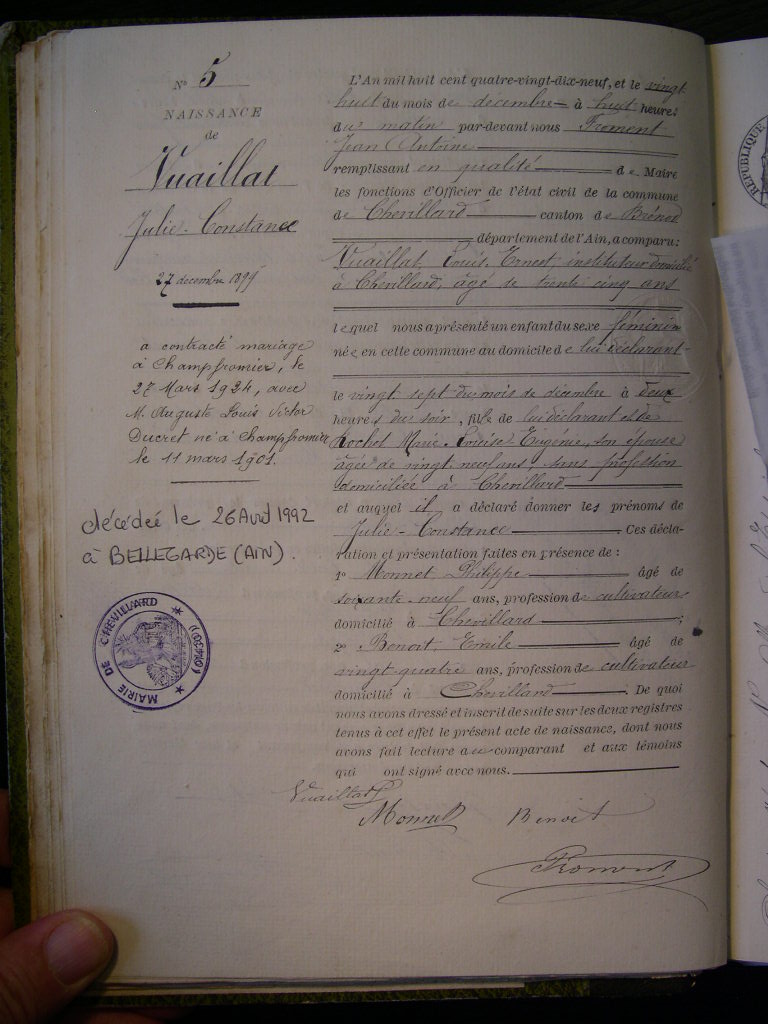 N° 5
NAISSANCE
de
Vuaillat
Julie-Constance
27 décembre 1899
a contracté mariage
à Champfromier, le
27 Mars 1924, avec
M. Auguste Louis Victor
Ducret né à Champfromier
le 11 mars 1901.
décédée le 26 Avril 1992
à BELLEGARDE (AIN).
MAIRIE DE CHEVILLARD
L'An mil huit cent quatre-vingt-dix-neuf, et le vingt
huit du mois de décembre à huit heures
du matin par-devant nous Froment
Jean Antoine
remplissant en qualité de Maire
les fonctions d'Officier de l'état civil de la commune
de Chevillard canton de Brénod
département de l'Ain, a comparu:
Vuaillat Louis-Ernest instituteur domicilié
à Chevillard, âgé de trente cinq ans
lequel nous a présenté un enfant du sexe féminin
née en cette commune au domicile de lui déclarant
le vingt sept du mois de décembre à deux
heures du soir, fille de lui déclarant et de
Rochet Marie-Louise Eugénie, son épouse
âgée de vingt neuf ans, sans profession
domiciliée à Chevillard
et auquel il a déclaré donner les prénoms de
Julie-Constance Ces décla-
ration et présentation faites en présence de :
1° Monnet Philippe âgé de
soixante-neuf ans, profession de cultivateur
domicilié à Chevillard ;
2° Benoit, Emile âgé de
vingt-quatre ans, profession de cultivateur
domicilié à Chevillard. De quoi
nous avons dressé et inscrit de suite sur les deux registres
tenus à cet effet le présent acte de naissance, dont nous
avons fait lecture au comparant et aux témoins
qui ont signé avec nous.
Vuaillat
Monnet Benoit
Froment
RÉPUBLIQUE